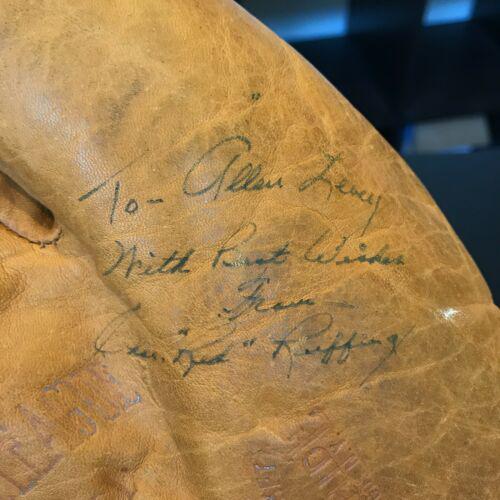 To- Allen Levy
With Best Wishes
From
Chas. "Red" Ruffing
LEAGUE